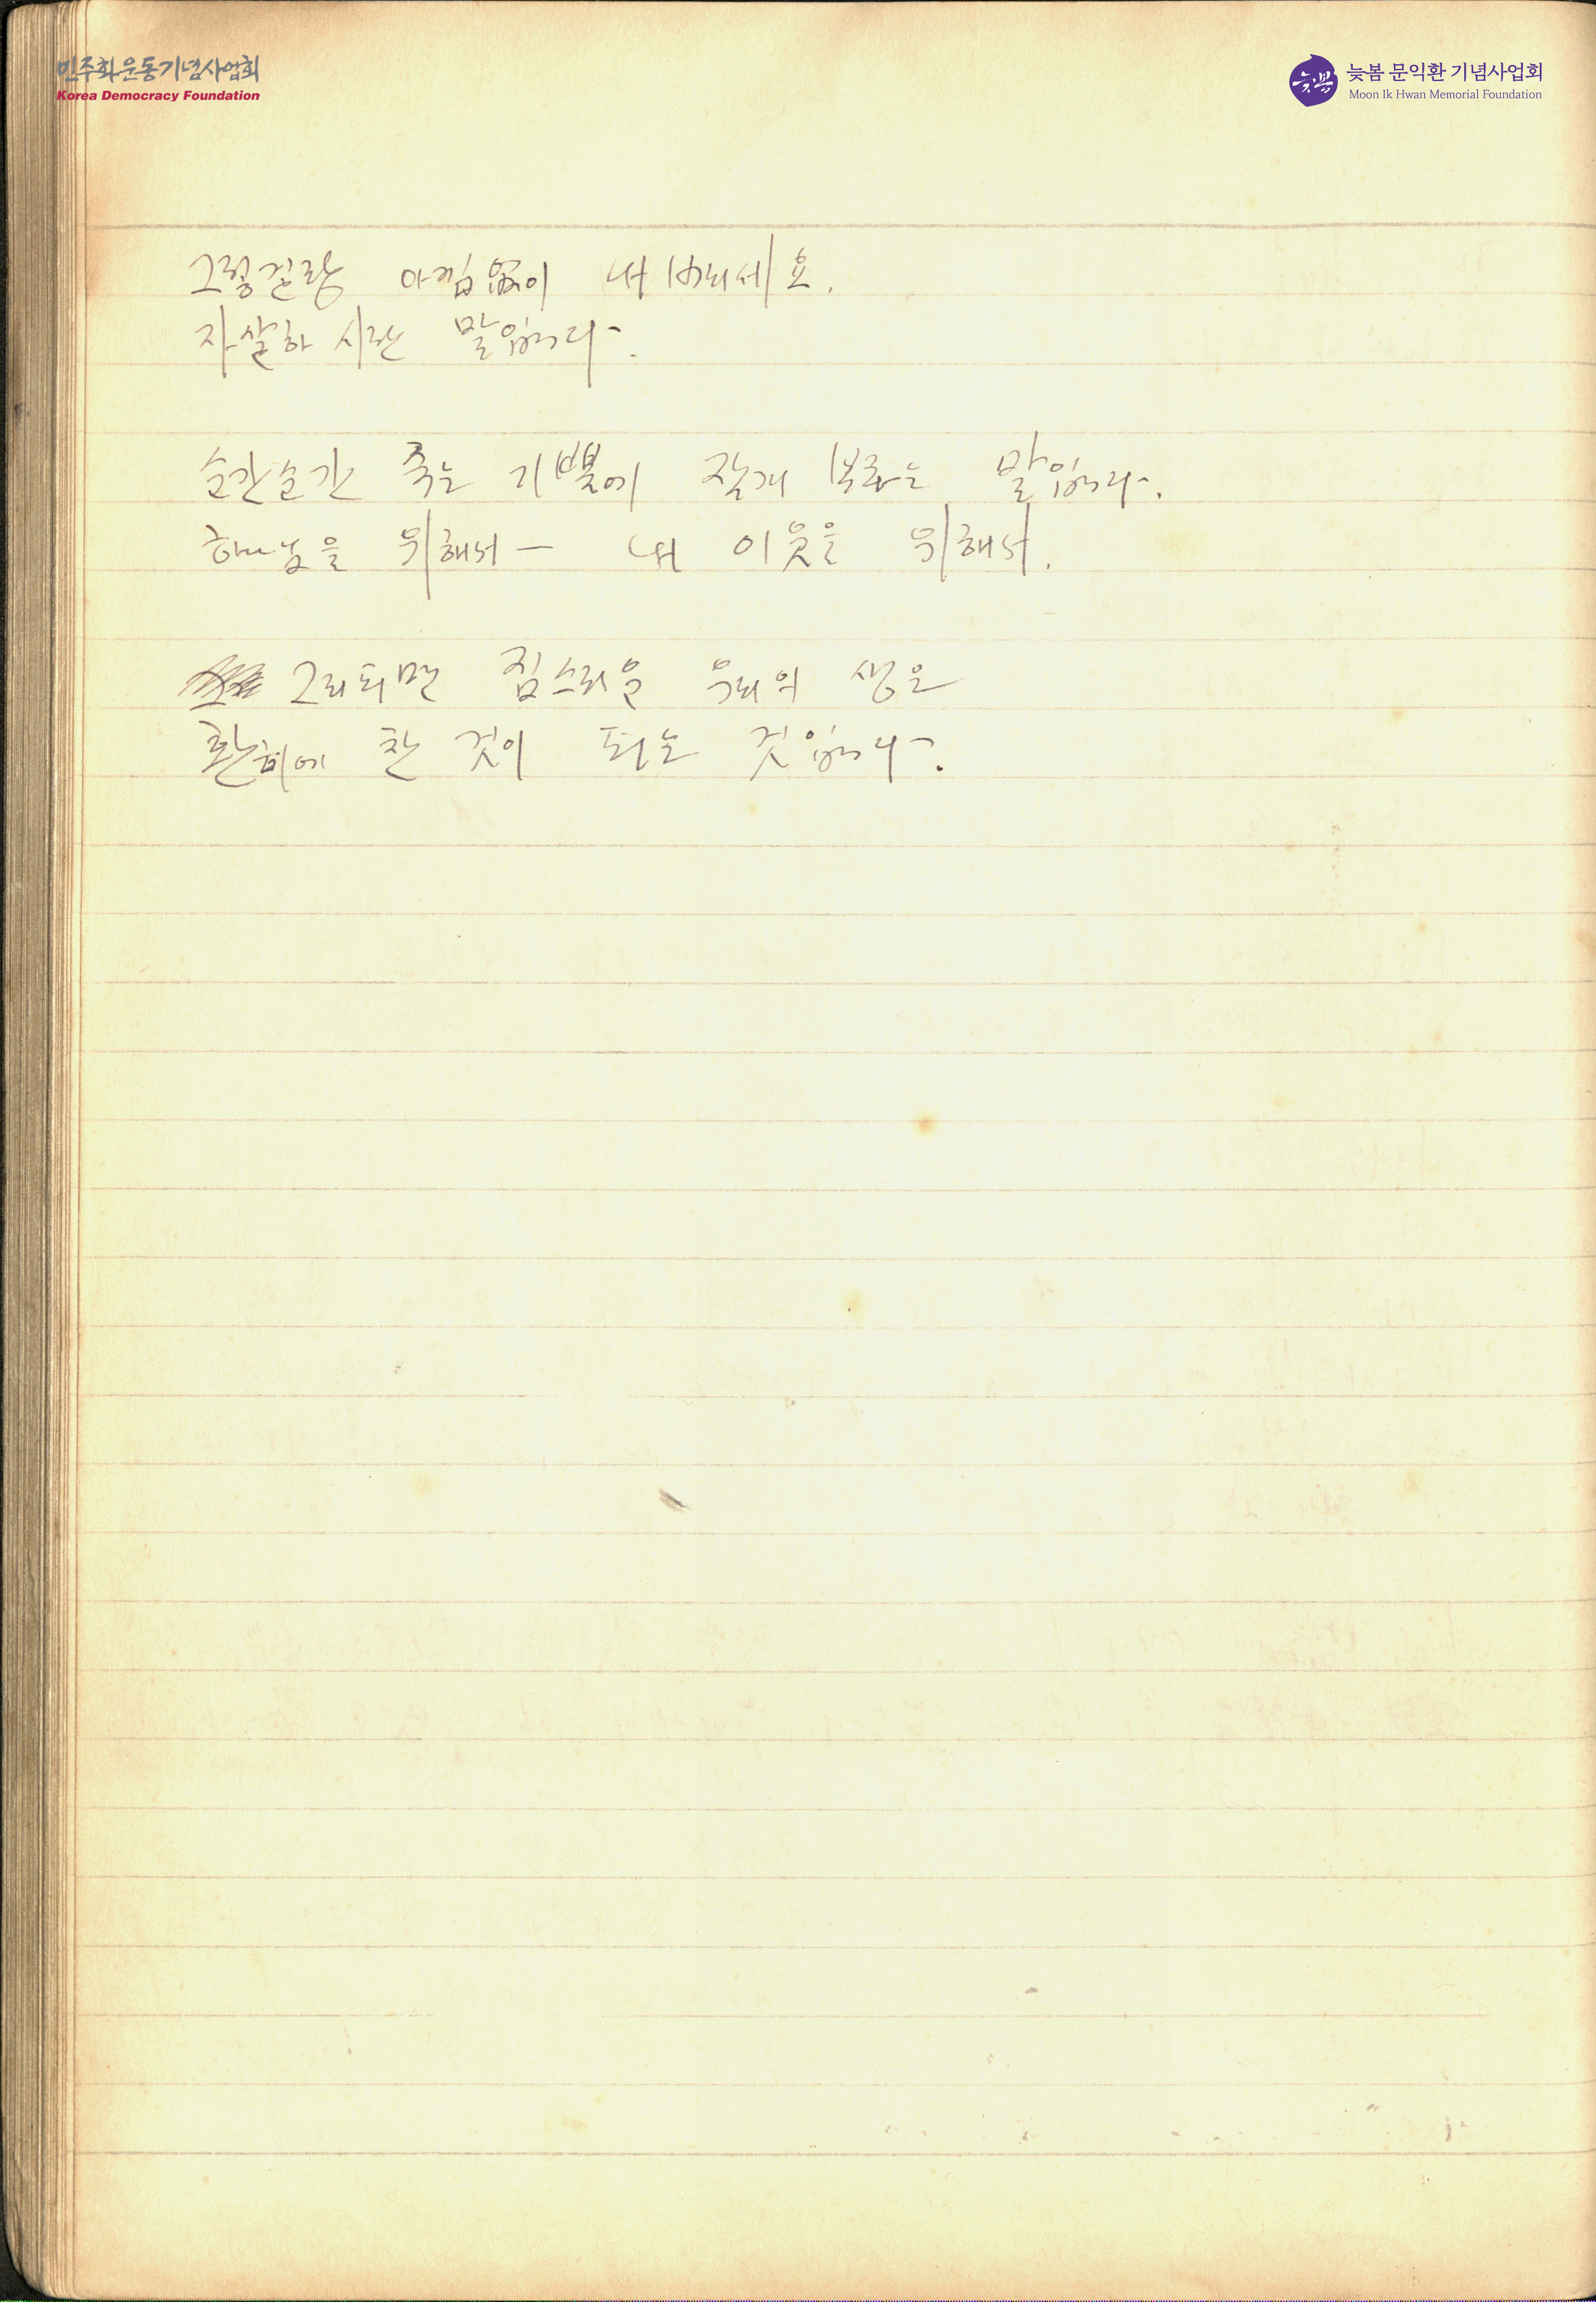 민주화운동기념사업회
Korea Democracy Foundation
늦봄 문익환 기념사업회
Moon Ik Hwan Memorial Foundation
늦봄
그렇걸랑 아낌없이 내버리세요.
자살하시란 말입니다.
순간순간 죽는 기쁨에 잠겨 보라는 말입니다.
하느님을 위해서 — 내 이웃을 위해서.
그리 되면 짐스러운 우리의 생은
환희에 찬 것이 되는 것입니다.